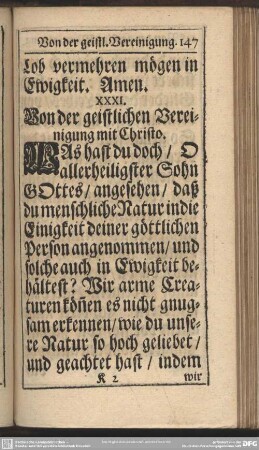 Von der geistl. Vereinigung. 147
Lob vermehren mögen in
Ewigkeit. Amen.
XXXI.
Von der geistlichen Verei-
nigung mit Christo.
WAs hast du doch / O
allerheiligster Sohn
GOttes / angesehen / daß
du menschliche Natur in die
Einigkeit deiner göttlichen
Person angenommen / und
solche auch in Ewigkeit be-
hältest? Wir arme Crea-
turen köñen es nicht gnug-
sam erkennen / wie du unse-
re Natur so hoch geliebet /
und geachtet hast / indem
K 2 wir
DFG